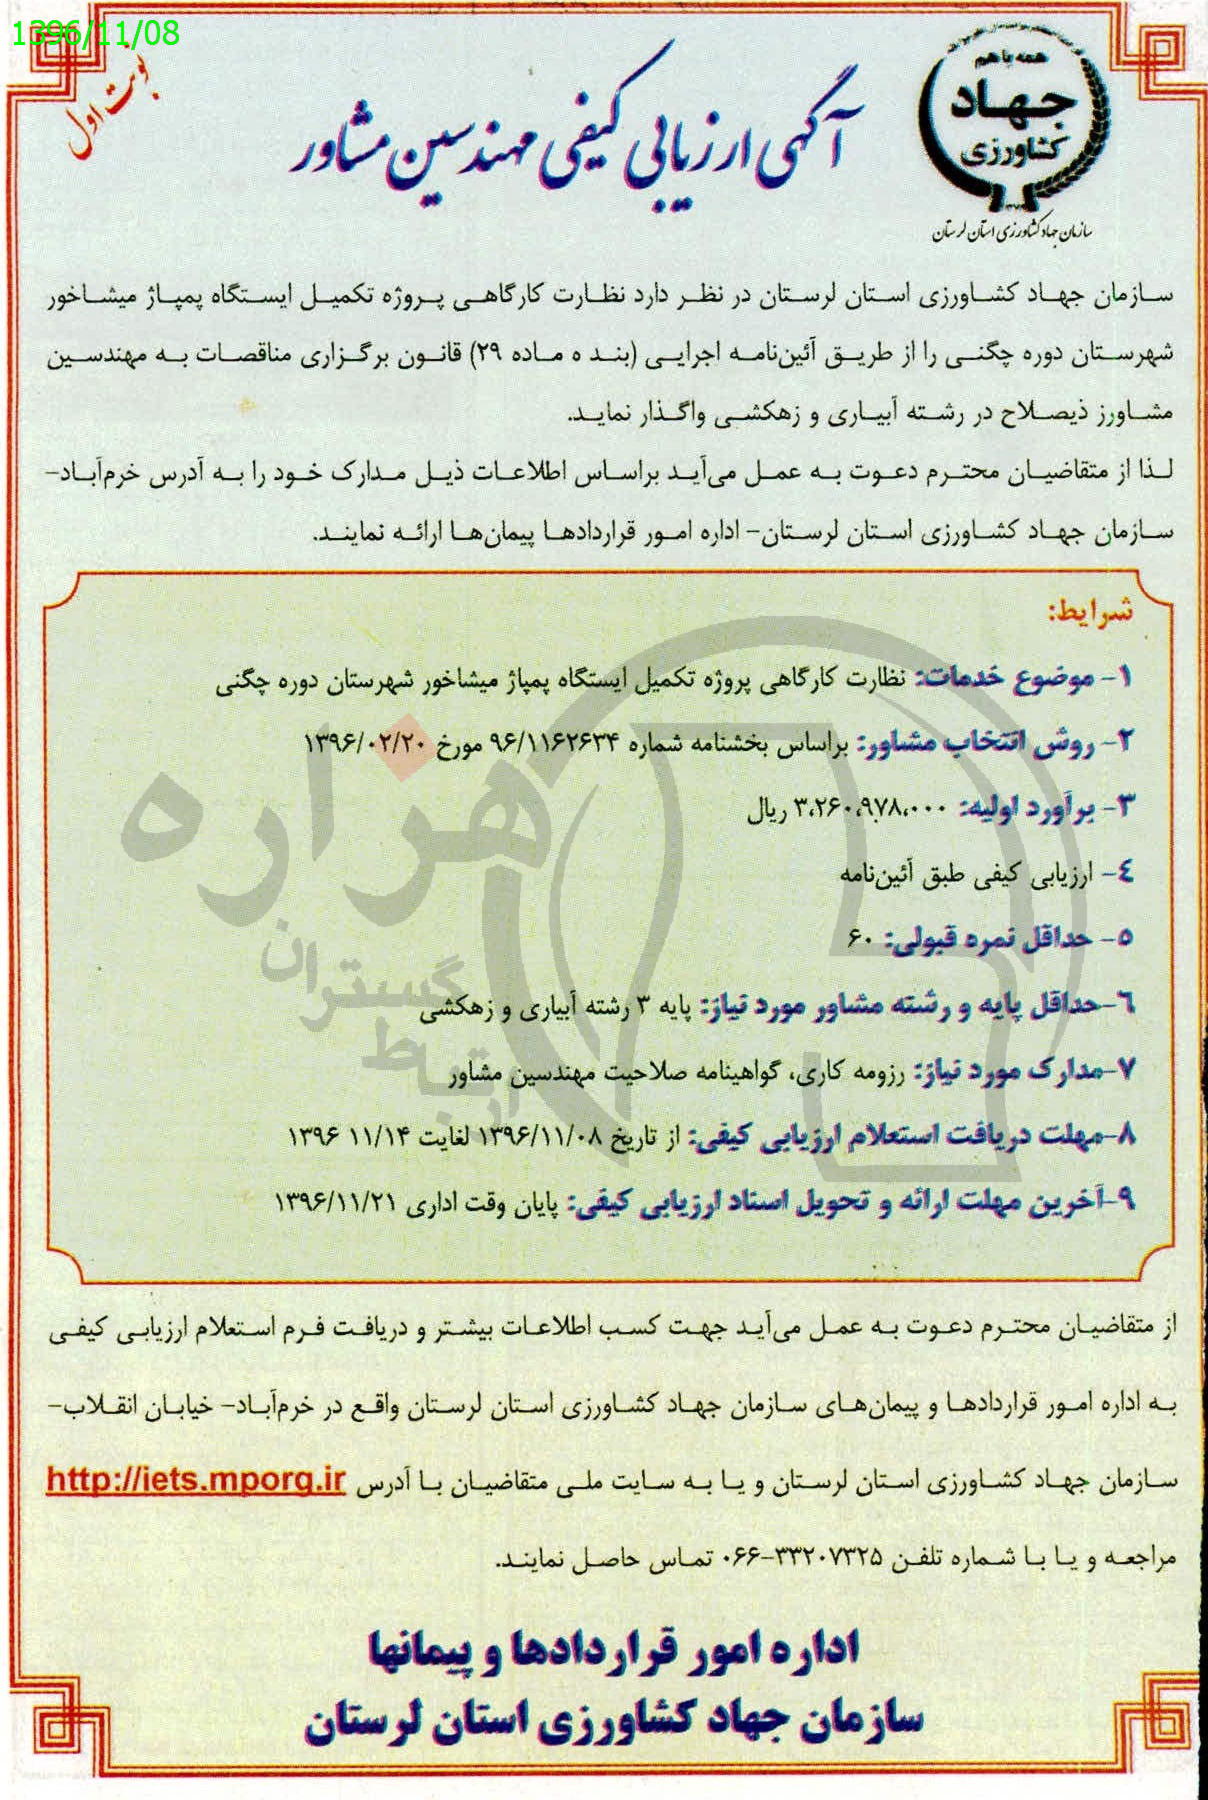 1396/11/08
نوبت اول
همه با هم
جهاد
کشاورزی
سازمان جهاد کشاورزی استان لرستان
آگهی ارزیابی کیفی مهندسین مشاور
سازمان جهاد کشاورزی استان لرستان در نظر دارد نظارت کارگاهی پروژه تکمیل ایستگاه پمپاژ میشاخور
شهرستان دوره چگنی را از طریق آئین‌نامه اجرایی (بند ه ماده ۲۹) قانون برگزاری مناقصات به مهندسین
مشاورز ذیصلاح در رشته آبیاری و زهکشی واگذار نماید.
لذا از متقاضیان محترم دعوت به عمل می‌آید براساس اطلاعات ذیل مدارک خود را به آدرس خرم‌آباد-
سازمان جهاد کشاورزی استان لرستان- اداره امور قراردادها پیمان‌ها ارائه نمایند.
شرایط:
۱- موضوع خدمات: نظارت کارگاهی پروژه تکمیل ایستگاه پمپاژ میشاخور شهرستان دوره چگنی
۲- روش انتخاب مشاور: براساس بخشنامه شماره ۹۶/۱۱۶۲۶۳۴ مورخ ۱۳۹۶/۰۲/۲۰
۳- برآورد اولیه: ۳،۲۶۰،۹۷۸،۰۰۰ ریال
٤- ارزیابی کیفی طبق آئین‌نامه
۵- حداقل نمره قبولی: ۶۰
٦-حداقل پایه و رشته مشاور مورد نیاز: پایه ۳ رشته آبیاری و زهکشی
۷-مدارک مورد نیاز: رزومه کاری، گواهینامه صلاحیت مهندسین مشاور
۸-مهلت دریافت استعلام ارزیابی کیفی: از تاریخ ۱۳۹۶/۱۱/۰۸ لغایت ۱۱/۱۴ ۱۳۹۶
۹-آخرین مهلت ارائه و تحویل اسناد ارزیابی کیفی: پایان وقت اداری ۱۳۹۶/۱۱/۲۱
هزاره
گستران
ارتباط
از متقاضیان محترم دعوت به عمل می‌آید جهت کسب اطلاعات بیشتر و دریافت فرم استعلام ارزیابی کیفی
به اداره امور قراردادها و پیمان‌های سازمان جهاد کشاورزی استان لرستان واقع در خرم‌آباد- خیابان انقلاب-
سازمان جهاد کشاورزی استان لرستان و یا به سایت ملی متقاضیان با آدرس http://iets.mporg.ir
مراجعه و یا با شماره تلفن ۳۳۲۰۷۳۲۵-۰۶۶ تماس حاصل نمایند.
اداره امور قراردادها و پیمانها
سازمان جهاد کشاورزی استان لرستان